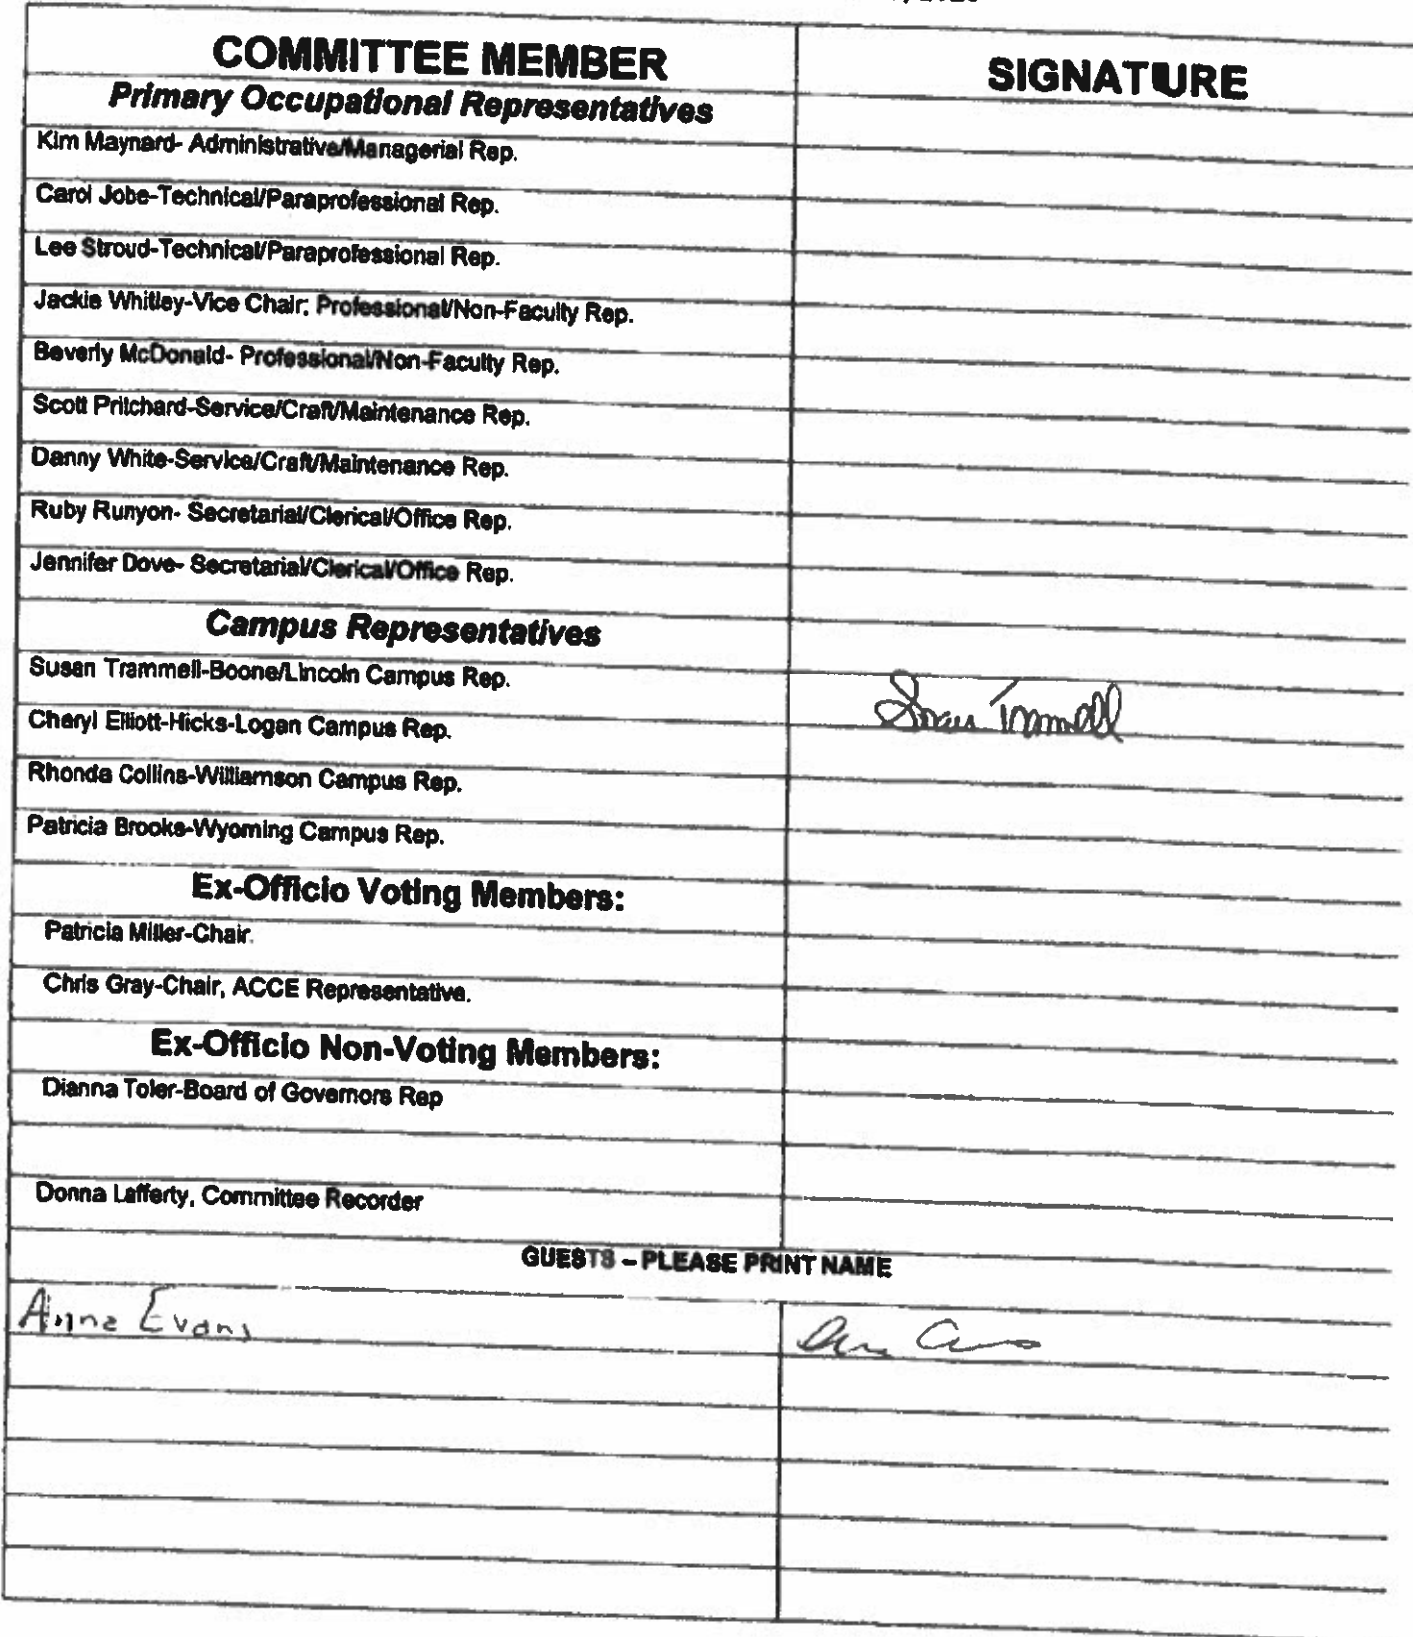 COMMITTEE MEMBER
SIGNATURE
Primary Occupational Representatives
Kim Maynard- Administrative/Managerial Rep.
Carol Jobe-Technical/Paraprofessional Rep.
Lee Stroud-Technical/Paraprofessional Rep.
Jackie Whitley-Vice Chair; Professional/Non-Faculty Rep.
Beverly McDonald- Professional/Non-Faculty Rep.
Scott Pritchard-Service/Craft/Maintenance Rep.
Danny White-Service/Craft/Maintenance Rep.
Ruby Runyon- Secretarial/Clerical/Office Rep.
Jennifer Dove- Secretarial/Clerical/Office Rep.
Campus Representatives
Susan Trammell-Boone/Lincoln Campus Rep.
Susan Trammell
Cheryl Elliott-Hicks-Logan Campus Rep.
Rhonda Collins-Williamson Campus Rep.
Patricia Brooks-Wyoming Campus Rep.
Ex-Officio Voting Members:
Patricia Miller-Chair.
Chris Gray-Chair, ACCE Representative.
Ex-Officio Non-Voting Members:
Dianna Toler-Board of Governors Rep
Donna Lafferty, Committee Recorder
GUESTS – PLEASE PRINT NAME
Anna Evans